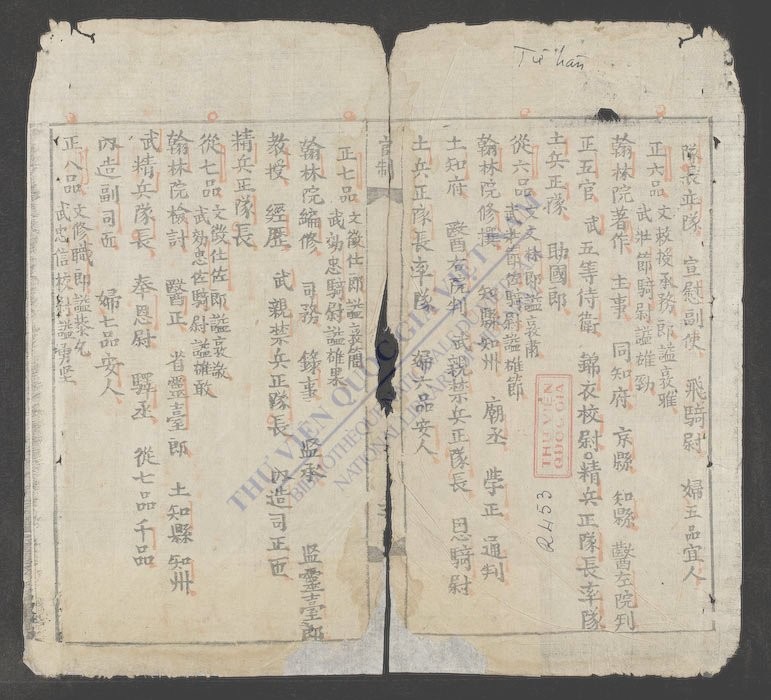 Từ hàn
隊長正隊 宣慰副使 飛騎尉 婦五品宜人
正六品 文敕授承務郎謚
武壯節騎尉謚雄勁
翰林院著作 主事 同知府 京縣 知縣 醫左院判
正五官 武五等侍衛 錦衣校尉 精兵正隊長率隊
土兵正隊 助國郎
從六品 文文林郎謚
武壯節佐騎尉謚雄節
翰林院修撰 知縣知州 廟丞 學正 通判
土知府 醫右院判 武親禁兵正隊長 恩騎尉
土兵正隊長率隊 婦六品安人
官制
正七品 文徵仕郎謚
武効忠騎尉謚雄果
翰林院編修 司務 錄事 監丞 監靈臺郎
教授 經歷 武親禁兵正隊長 內造司正匠
精兵正隊長
從七品 文徵仕佐郎謚
武効忠佐騎尉謚雄敢
翰林院檢討 醫正 省靈臺郎 土知縣知州
武精兵隊長 奉恩尉 驛丞 從七品千品
內造副司匠 婦七品安人
正八品 文修職郎謚
武忠信校尉謚勇堅
THƯ VIỆN QUỐC GIA VIỆT NAM
BIBLIOTHÈQUE NATIONALE DU VIETNAM
NATIONAL LIBRARY OF VIETNAM
THƯ VIỆN
QUỐC GIA
R.453